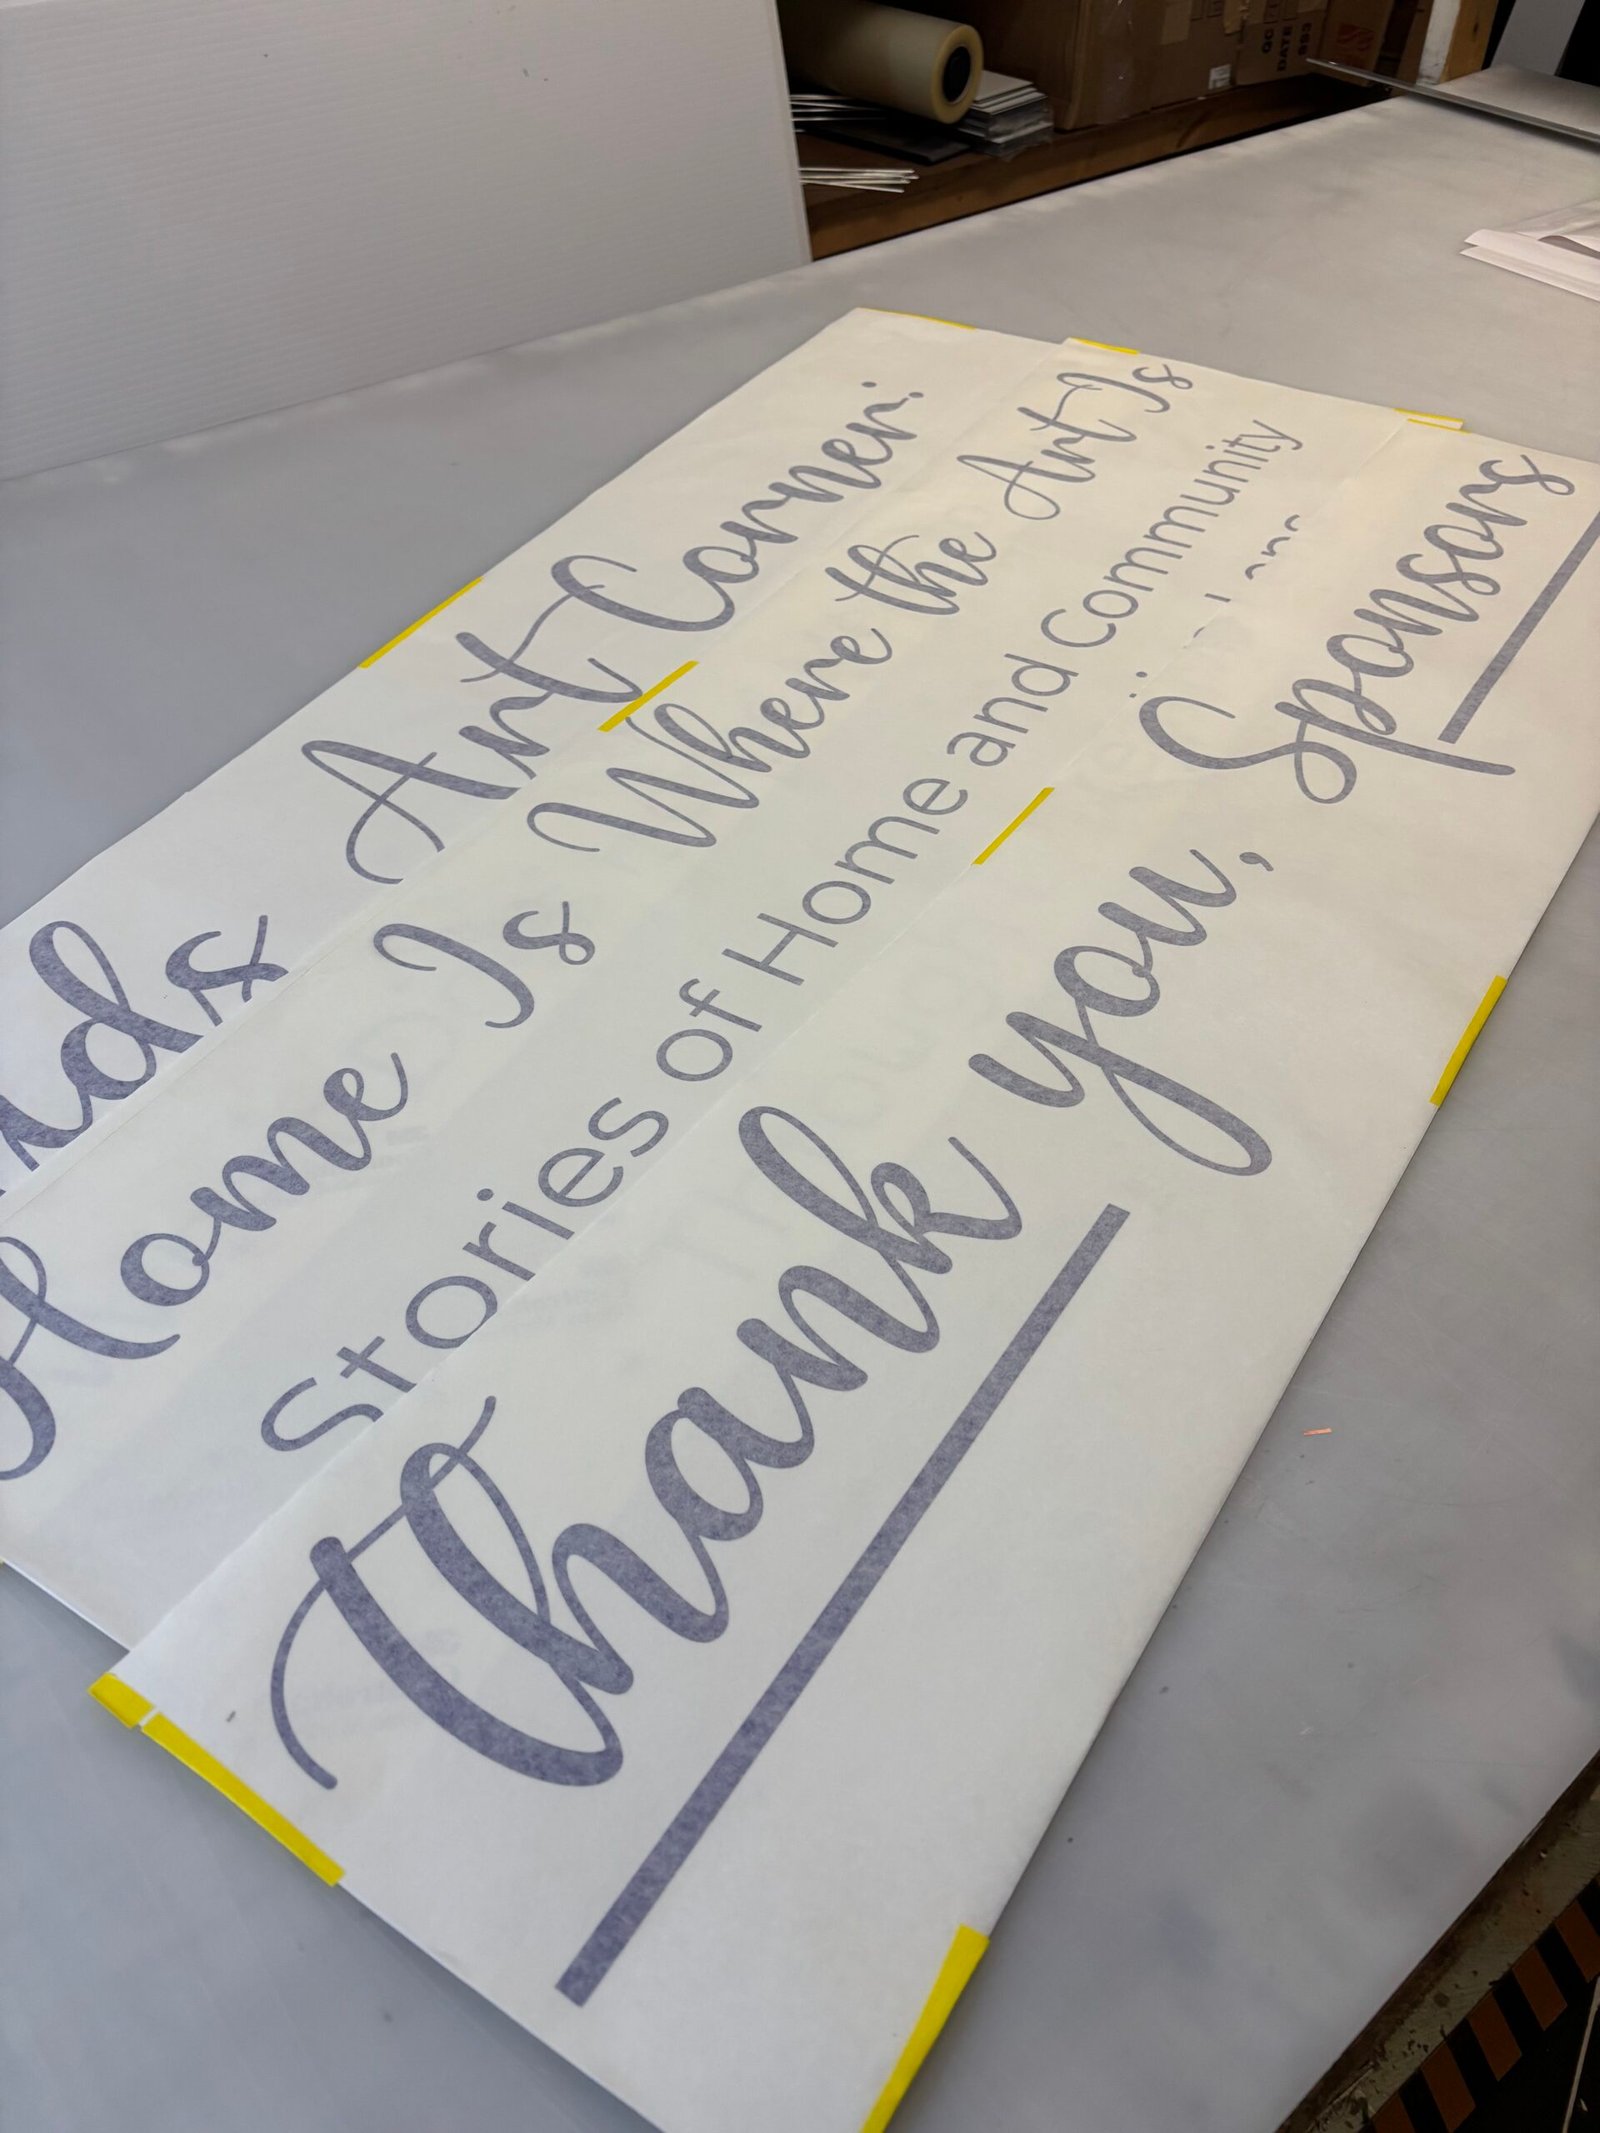 Art Corner:
Home Is Where the Art Is
Stories of Home and Community
Thank you, Sponsors
QC
DATE